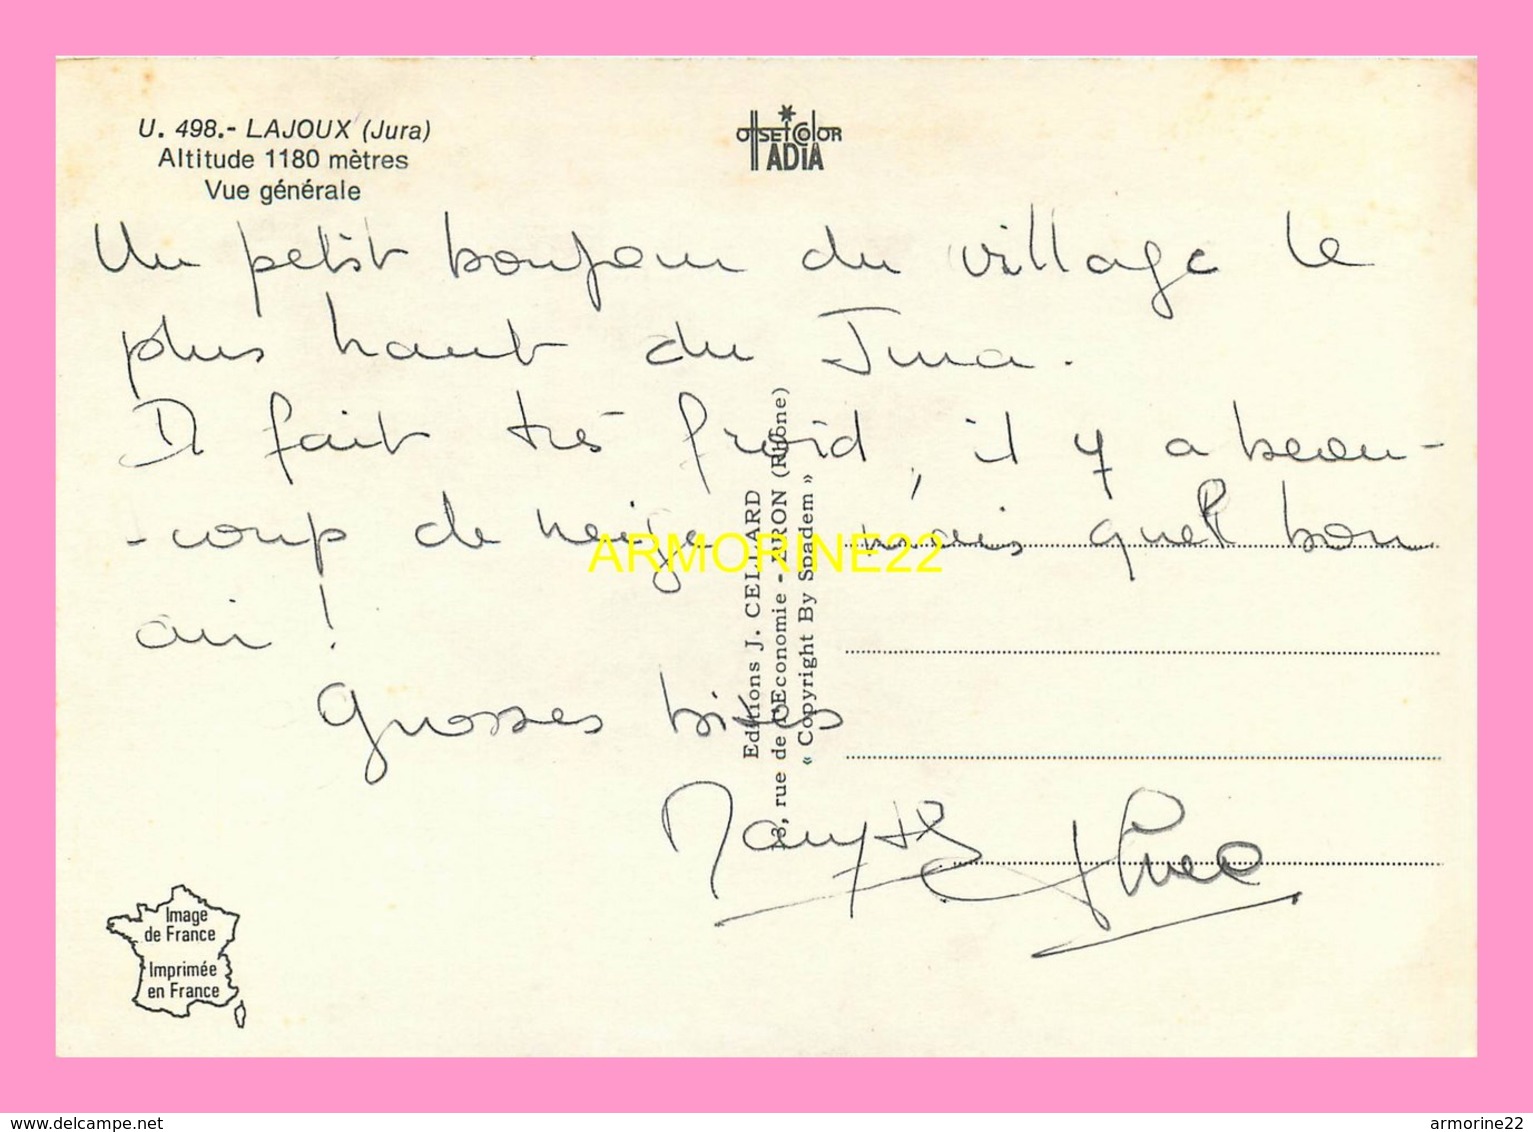 U. 498.- LAJOUX (Jura)
Altitude 1180 mètres
Vue générale
OFFSETCOLOR
ADIA
Un petit bonjour du village le
plus haut du Jura.
Il fait très froid, il y a beau-
-coup de neige mais quel bon
air !
Grosses bises
Editions J. CELLARD
rue de l'Economie - BRON (Rhône)
« Copyright By Spadem »
ARMORINE22
Image
de France
Imprimée
en France
www.delcampe.net
armorine22